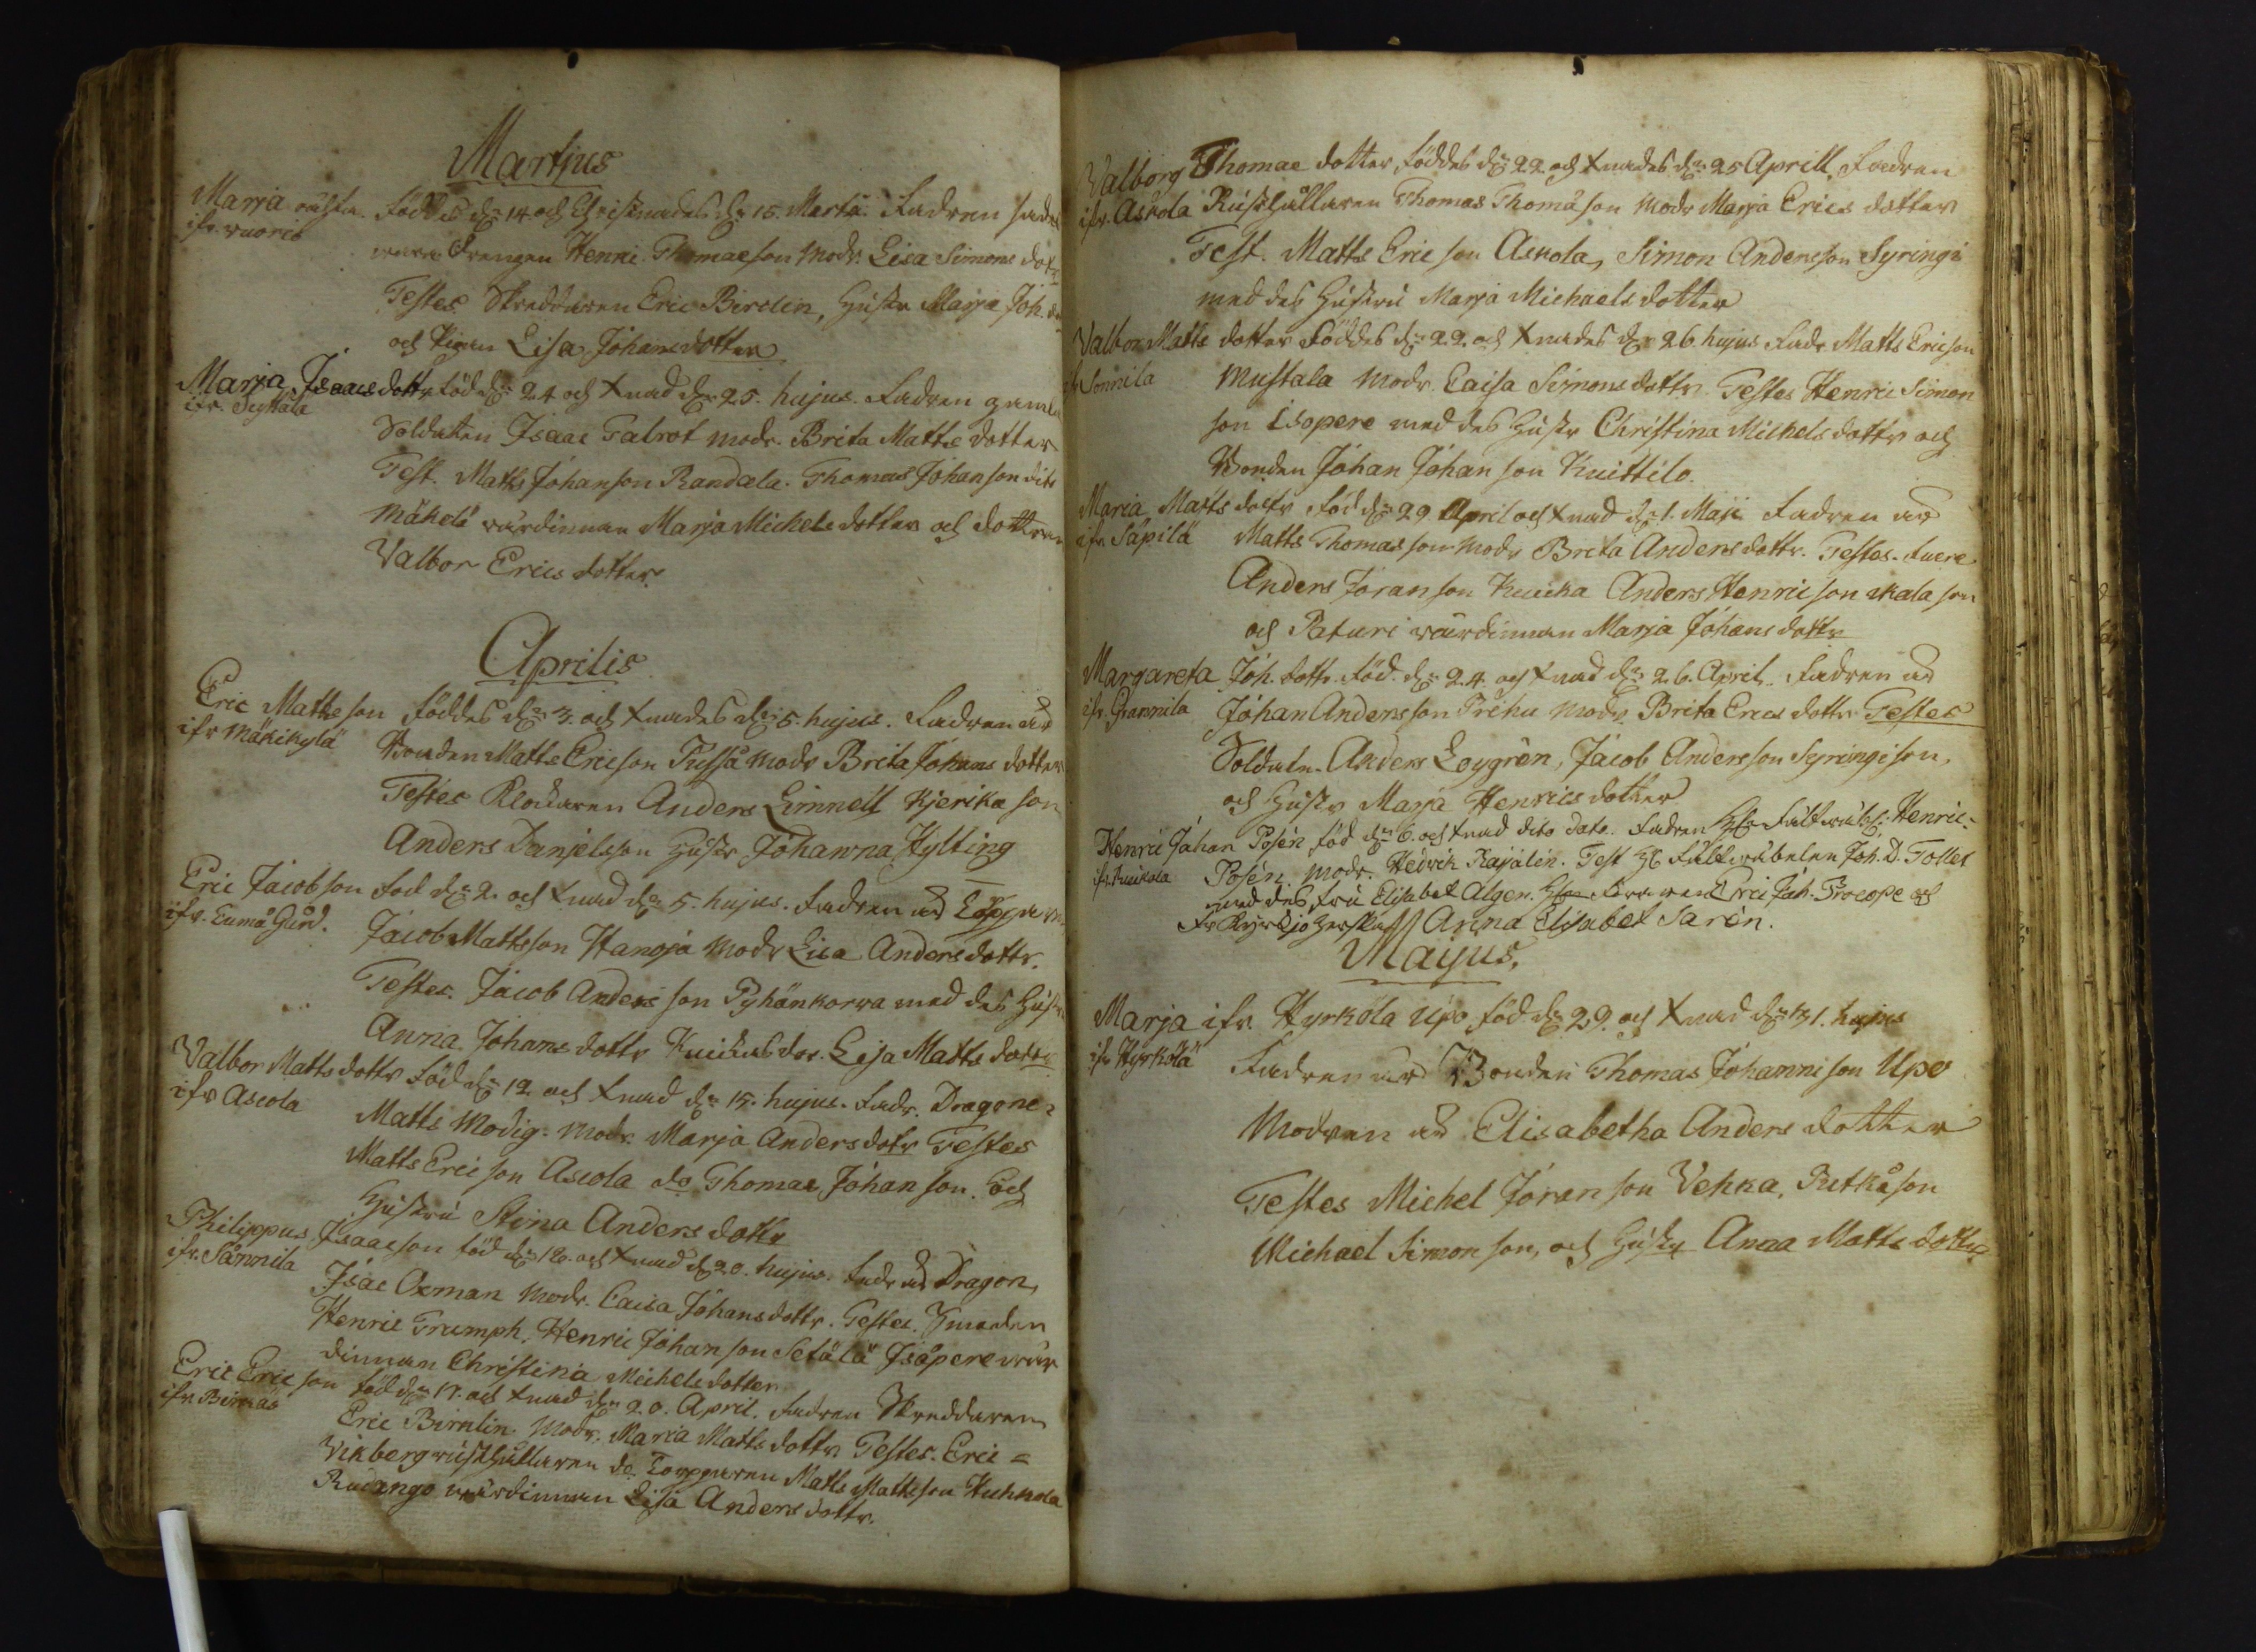 Martjus
Marja oächta. föddes d: 14 och Christnades d: 15. Marti. Fadren sades
ifr. vuoris
wara Drengen Henric Thomaeson Modr. Lisa Simons dotr
Testes Skreddaren Eric Birelin, Hustr Marja Joh. dr
och Pigan Lisa Johansdotter
Marja Isaacs dottr föd d: 24 och Xnad d: 25. hujus. Fadren gamla
ifr. Seyttälä
Soldaten Isaac Galrot Modr. Brita Matts dotter
Test. Matts Johanson Randala. Thomas Johanson dito
Mäkelä wärdinnan Marja Michels dotter och dottren
Valbor Erics dotter
Aprilis
Eric Mattsson föddes d: 3. och Xnades d: 5. hujus. Fadren är
ifr Mäkikylä
Bonden Matts Ericson Pussa Modr Brita Johans dotter
Testes Klockaren Anders Limnell Kjerika son
Anders Danjelsson Hustr Johanna Hylting
Eric Jacobson föd d: 2. och Xnad d: 5. hujus. Fadren är
ifr. Eumä Gård.
Jacob Mattsson Hanoja Modr Lisa Andersdottr.
Testes. Jacob Andersson Pyhänkorwa med des Hustru
Anna Johans dottr Lisa Matts dottr
Valbor Matts dottr föd d: 12. och Xnad d: 15. hujus. Fadr. Dragone:
ifr Ascola
Matts Modig. Modr. Marja Anders dotr Testes
Matts Ericson Ascola do Thomas Johanson. och
Hustru Stina Anders dottr
Philippus Isaacson föd d: 18. och Xnad d: 20. hujus. Fadr är Dragon,
ifr. Sännila
Isac Oxman Modr. Caisa Johansdottr. Testes. Smeden
Henric Trumph. Henric Johanson Setälä Isopere wär
dinnan Christina Michelsdotter
Eric Ericson föd d: 17. och Xnad d: 20. April. Fadren Skreddaren
ifr. Birnäs
Eric Birnlin. Modr. Maria Matts dottr Testes. Eric =
Vikberg rusthållaren do. Torpparen Matts Mattsson Huhkola
Rudango wärdinnan Lisa Anders dottr.
Valborg Thomae dotter, föddes d: 22 och Xnades d: 25 Aprill. Fadren
ifr. Askola
Rusthållaren Thomas Thomäson Modr Marja Erics dotter
Test. Matts Ericson Askola, Simon Andersson Syringi
med des Hustru Marja Michaelsdotter
Valbor Matts dotter föddes d: 22. och Xnades d: 26. hujus Fadr. Matts Ericson
ifr Sonnila
Mustala Modr. Caisa Simonsdottr. Testes Henric Simon
son Isopere med des Hustr Christina Michelsdottr och
Bonden Johan Johanson Knittilo.
Maria Matts dottr föd d: 29 April och Xnad d: 1. Maji Fadren är
ifr Säpilä
Matts Thomasson Modr Breta Anders dottr. Testes fuere
Anders Joranson Kuicka Anders Henricson skala son
och Paturi wärdinnan Marja Johansdottr
Margareta Joh. dottr. föd. d: 24. och Xnad d: 26. April. Fadren är
ifr. Grannila
Johan Andersson Prihu Modr Brita Erics dottr Testes
Soldatn. Anders Loggrén, Jacob Andersson Syringison,
och Hustr Marja Henricsdotter
Henric Johan Posén föd d: 6. och Xnad dito dato. Fadren Hr. Fältwäb: Henric
ifr. Kuckola
Posén. Modr. Hedvik Rajalin. Test Hr Fältwäbelen Joh. D. Tollet
med des fru Elisabet Algen. Eric Joh. Procopé och
Anna Elisabet Sarén.
Majus.
Marja ifr. Hyrkölä Upo föd d: 29. och Xnad d: 31. hujus
ifr Hyrkölä
Fadren är Bonden Thomas Johanneson Upo
Modren är Elisabetha Anders dotter
Testes Michel Joranson Vehka, Ritkåson
Michael Simonson, och Hustr Anna Matts dotter